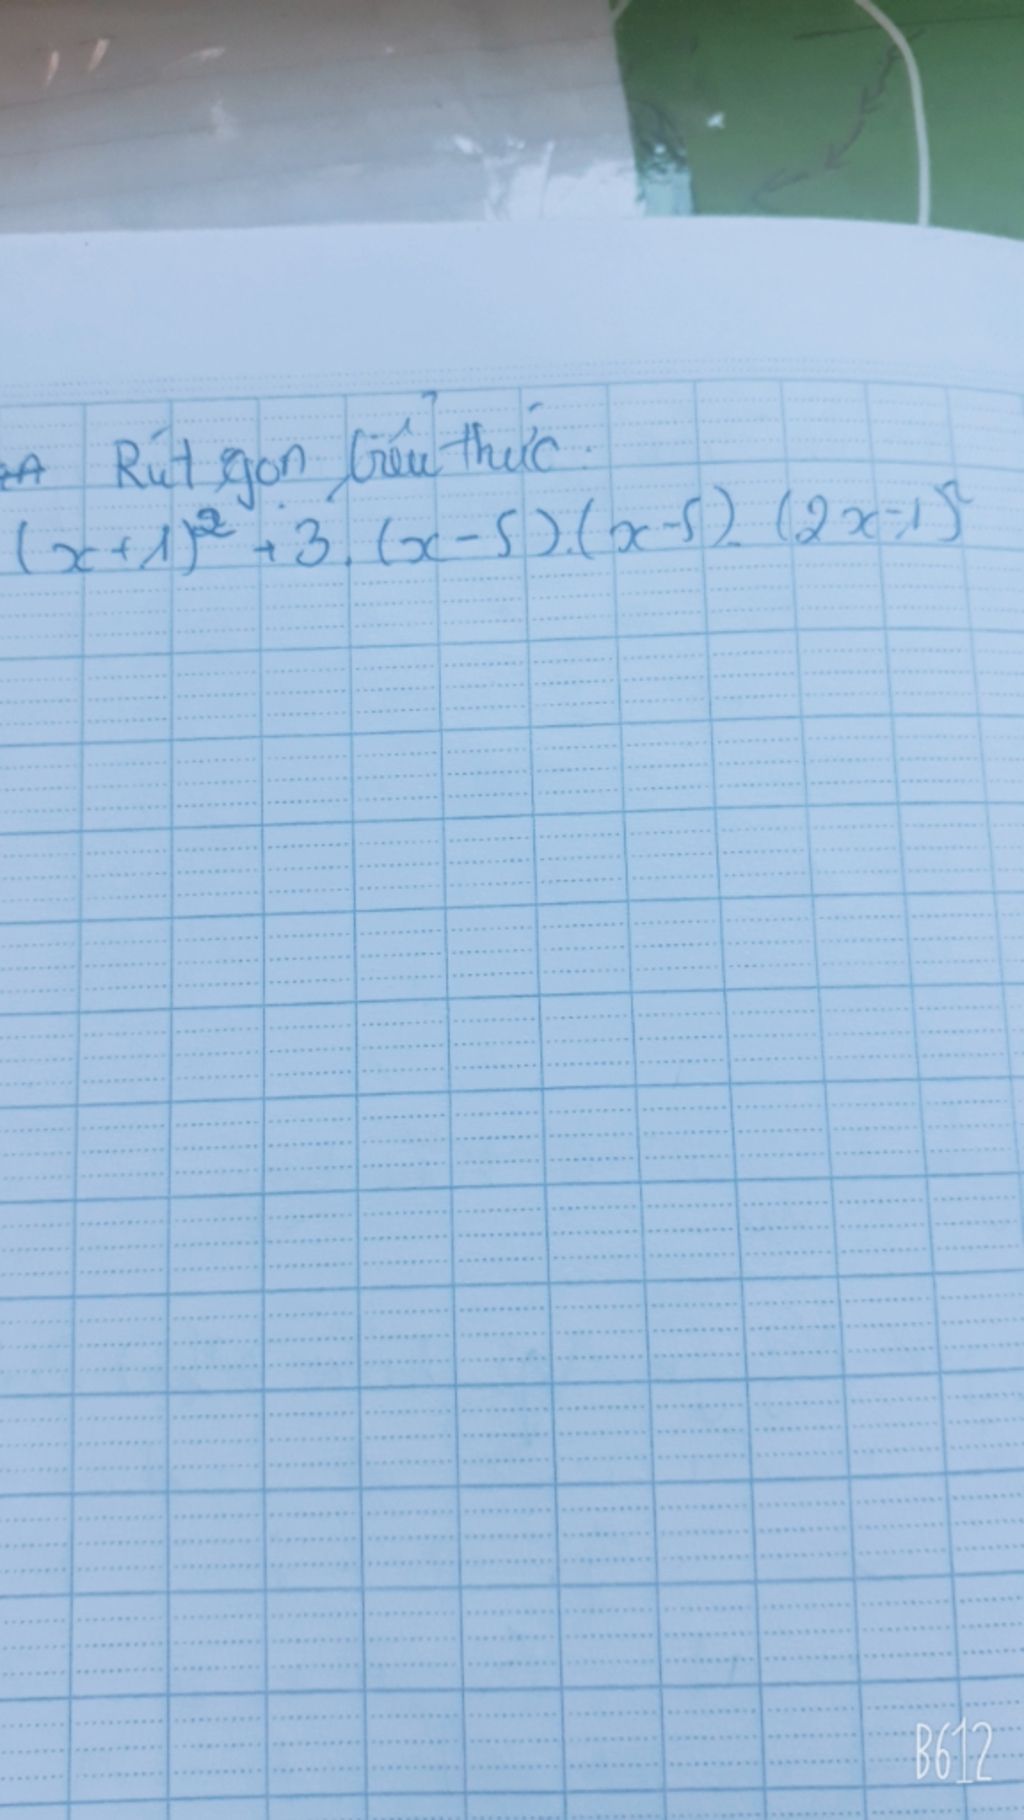 Rút gọn biểu thức.
(x+1)² + 3.(x-5).(x-5)-(2x-1)²
B612